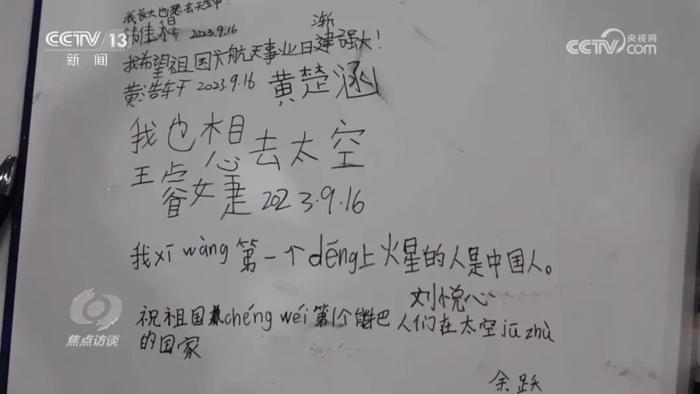 我长大也想去天空中!
2023.9.16
渐
我希望祖国六航天事业日建强大!
2023.9.16 黄楚涵
我也想去太空
2023.9.16
我xī wàng第一个dēng上火星的人是中国人。
刘悦心
祝祖国 chéng wéi第1个能把人们在太空jū zhù
的国家
余跃
CCTV 13
新闻
央视网
CCTV.com
焦点访谈